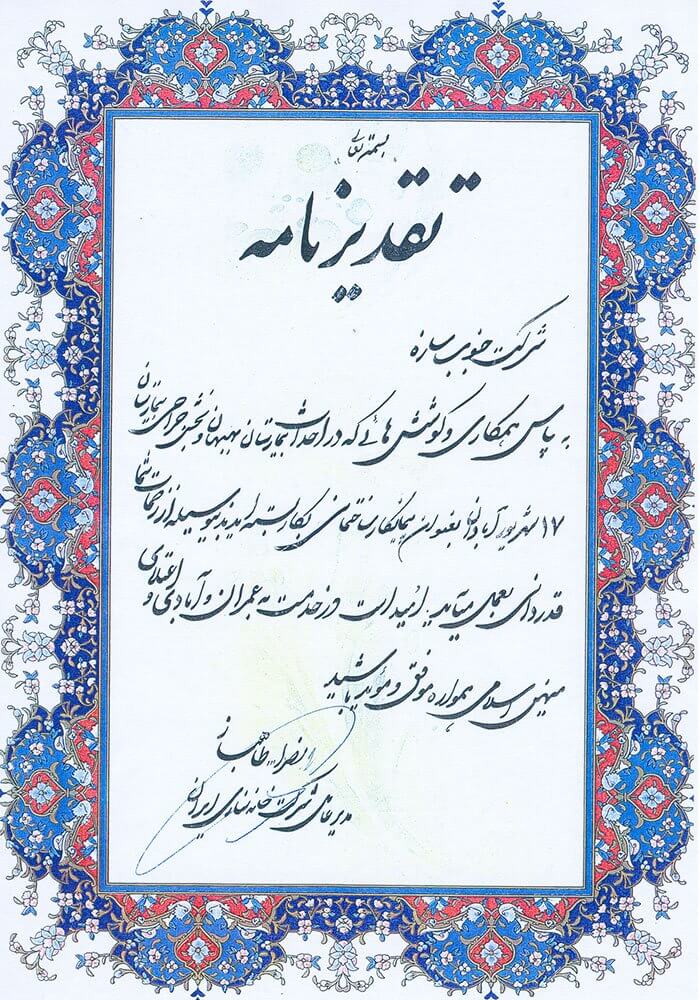 بسمه تعالی
تقدیرنامه
شرکت خوب سازه
به پاس همکاری و کوشش هائی که در احداث بیمارستان بهبهان و بخش جراحی بیمارستان
۱۷ شهریور آبادان بعنوان پیمانکار ساختمانی بکار بسته اید بدینوسیله از زحمات شما
قدردانی بعمل میآید. امید است در خدمت به عمران و آبادی و اعتلای
میهن اسلامی همواره موفق و موید باشید
نصرا... طالب
مدیرعامل شرکت خانه سازی ایران